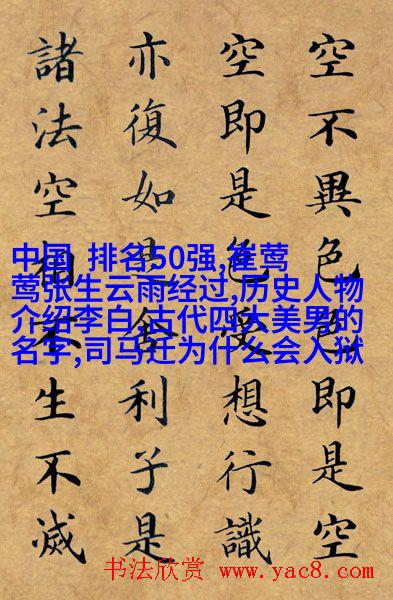 空不異色色即是空
空即是色受想行識
亦復如是舍利子是
諸法空相不生不滅
中国 排名50强,崔莺
莺张生云雨经过,历史人物
介绍李白,古代四大美男的
名字,司马迁为什么会入狱
书法欣赏 www.yac8.com